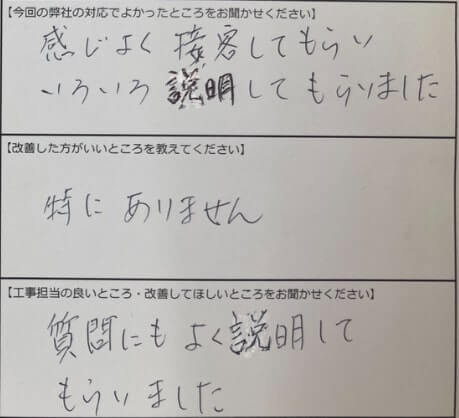 【今回の弊社の対応でよかったところをお聞かせください】
感じよく接客してもらい
いろいろ説明してもらいました
【改善した方がいいところを教えてください】
特にありません
【工事担当の良いところ・改善してほしいところをお聞かせください】
質問にもよく説明して
もらいました